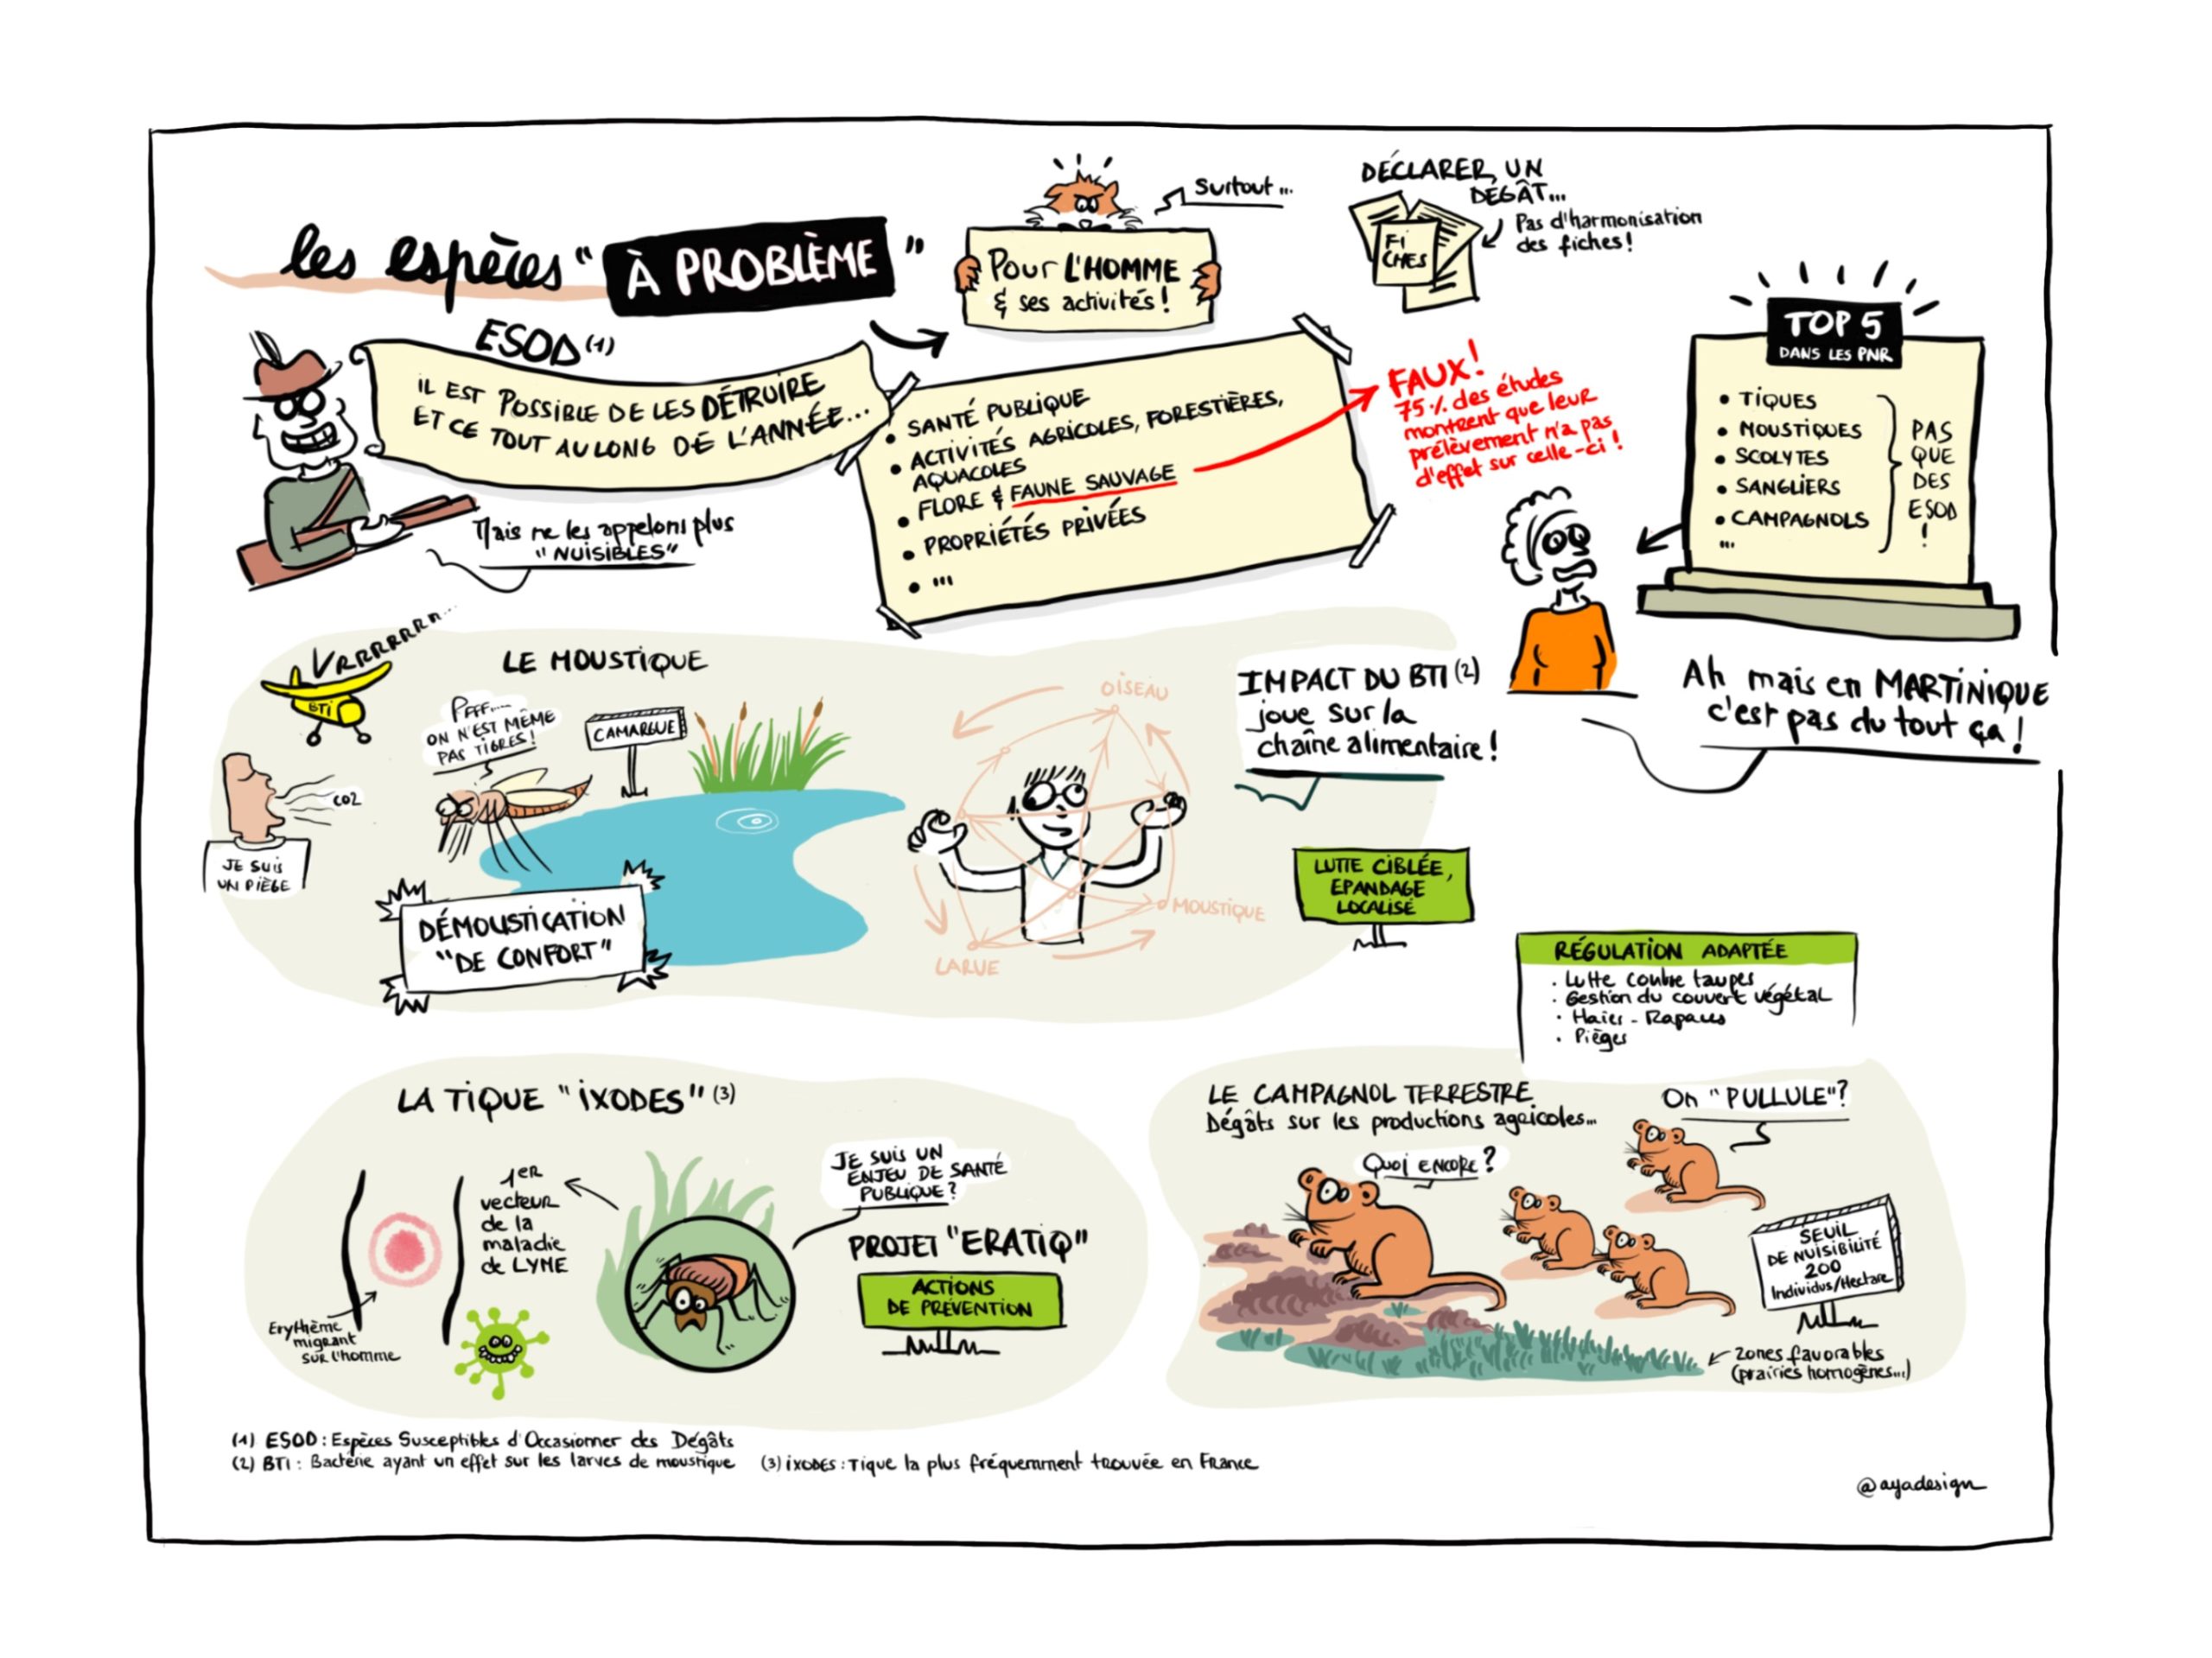 les espèces "À PROBLÈME"
Surtout...
Pour L'HOMME
& ses activités !
DÉCLARER UN
DÉGÂT...
Pas d'harmonisation
des fiches !
FI
CHES
ESOD (1)
iL EST POSSIBLE DE LES DÉTRUIRE
ET CE TOUT AU LONG DE L'ANNÉE...
Mais ne les appelons plus
"NUISIBLES"
• SANTÉ PUBLIQUE
• ACTIVITÉS AGRICOLES, FORESTIÈRES,
AQUACOLES
• FLORE & FAUNE SAUVAGE
• PROPRIÉTÉS PRIVÉES
• ...
FAUX !
75% des études
montrent que leur
prélèvement n'a pas
d'effet sur celle-ci !
TOP 5
DANS LES PNR
• TIQUES
• MOUSTIQUES
• SCOLYTES
• SANGLIERS
• CAMPAGNOLS
...
PAS
QUE
DES
ESOD
!
Ah mais en MARTINIQUE
c'est pas du tout ça !
VRRRRRRR...
BTi
LE MOUSTIQUE
PFFF...
ON N'EST MÊME
PAS TIGRES !
CAMARGUE
CO2
JE SUIS
UN PIÈGE
DÉMOUSTICATION
"DE CONFORT"
OISEAU
MOUSTIQUE
LARVE
IMPACT DU BTI (2)
joue sur la
chaîne alimentaire !
LUTTE CIBLÉE,
EPANDAGE
LOCALISÉ
RÉGULATION ADAPTÉE
. Lutte contre taupes
. Gestion du couvert végétal
. Haies - Rapaces
. Pièges
LA TIQUE "iXODES" (3)
1ER
vecteur
de la
maladie
de LYME
Erythème
migrant
sur l'homme
JE SUIS UN
ENJEU DE SANTÉ
PUBLIQUE ?
PROJET "ERATIQ"
ACTIONS
DE PRÉVENTION
LE CAMPAGNOL TERRESTRE
Dégâts sur les productions agricoles...
Quoi ENCORE ?
On "PULLULE" ?
SEUIL
DE NUISIBILITÉ
200
Individus/Hectare
zones favorables
(prairies homogènes...)
(1) ESOD : Espèces Susceptibles d'Occasionner des Dégâts
(2) BTi : Bactérie ayant un effet sur les larves de moustique (3) iXODES : Tique la plus fréquemment trouvée en France
@ayadesign